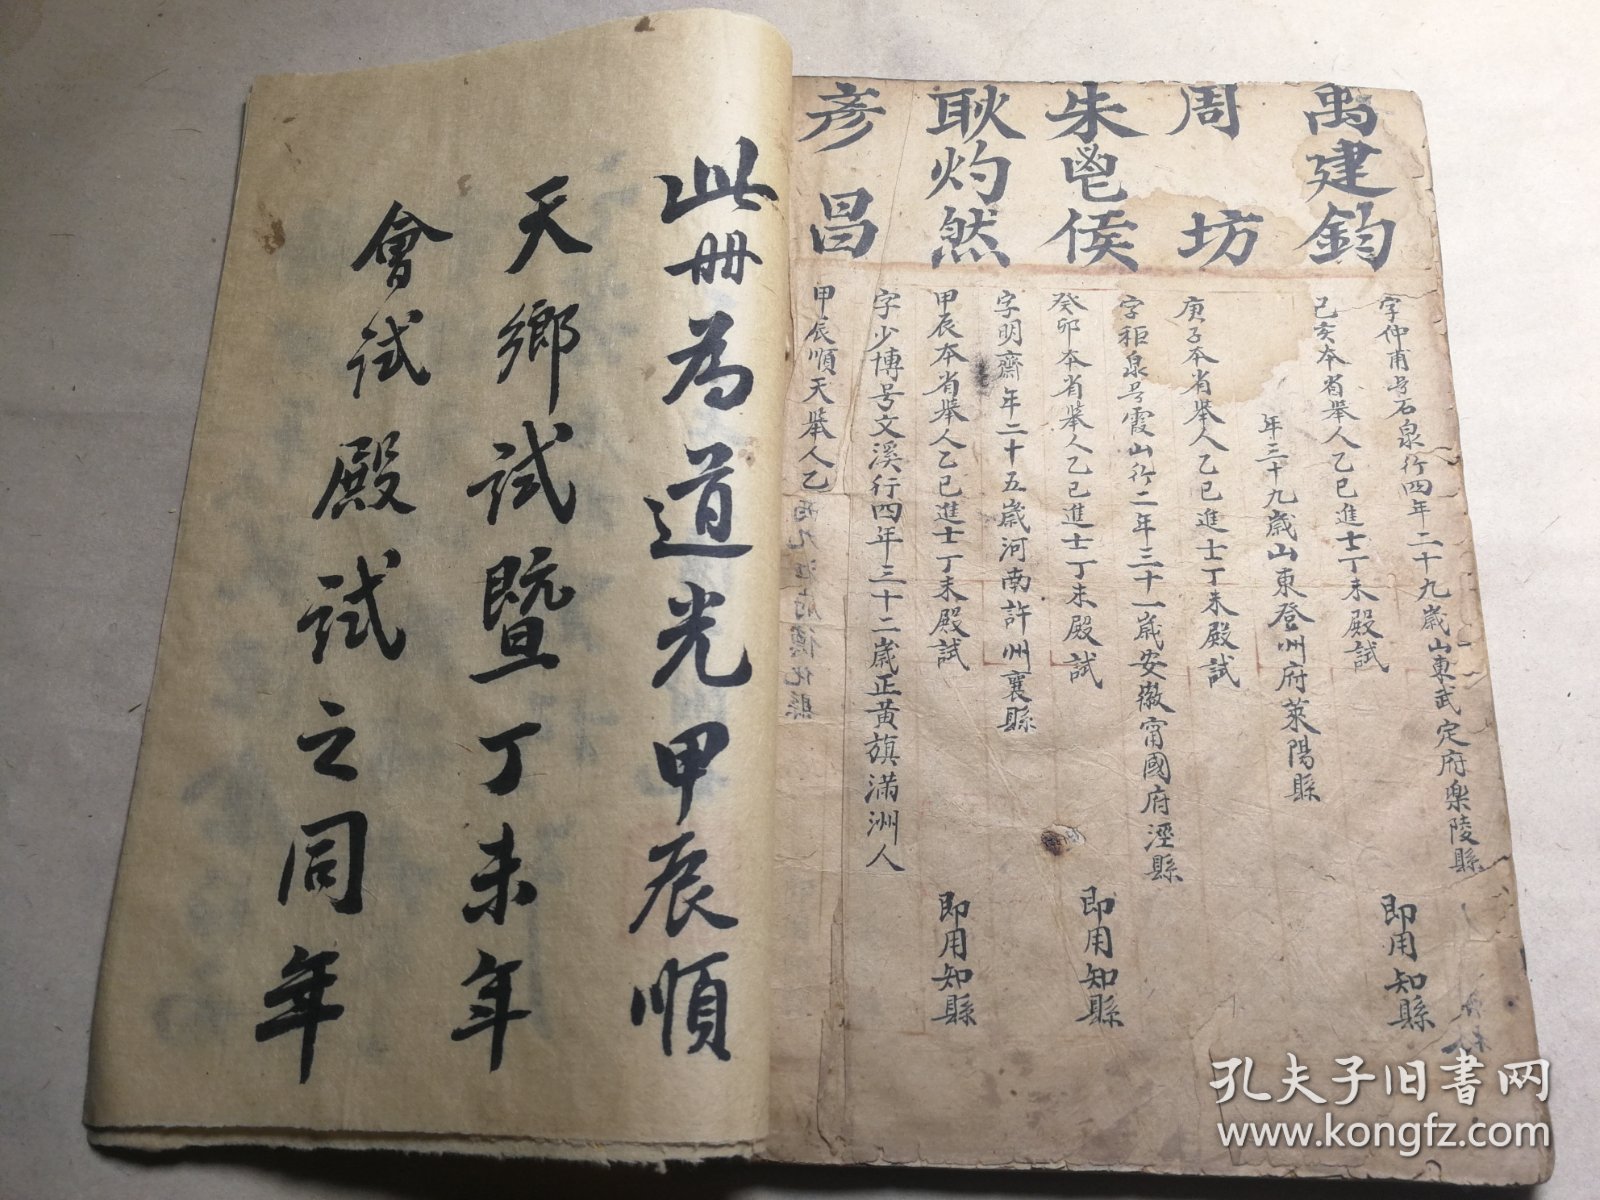 禹建鈞
字仲甫号石泉行四年二十九歲山東武定府樂陵縣
己亥本省舉人乙巳進士丁未殿試
即用知縣
周坊
年三十九歲山東登州府萊陽縣
庚子本省舉人乙巳進士丁未殿試
朱鬯侯
字秬泉号霞山行二年三十一歲安徽甯國府涇縣
癸卯本省舉人乙巳進士丁未殿試
即用知縣
耿灼然
字明齋年二十五歲河南許州襄縣
甲辰本省舉人乙巳進士丁未殿試
即用知縣
彥昌
字少博号文溪行四年三十二歲正黃旗滿洲人
甲辰順天舉人乙
此冊為道光甲辰順
天鄉試暨丁未年
會試殿試之同年
孔夫子旧书网
www.kongfz.com